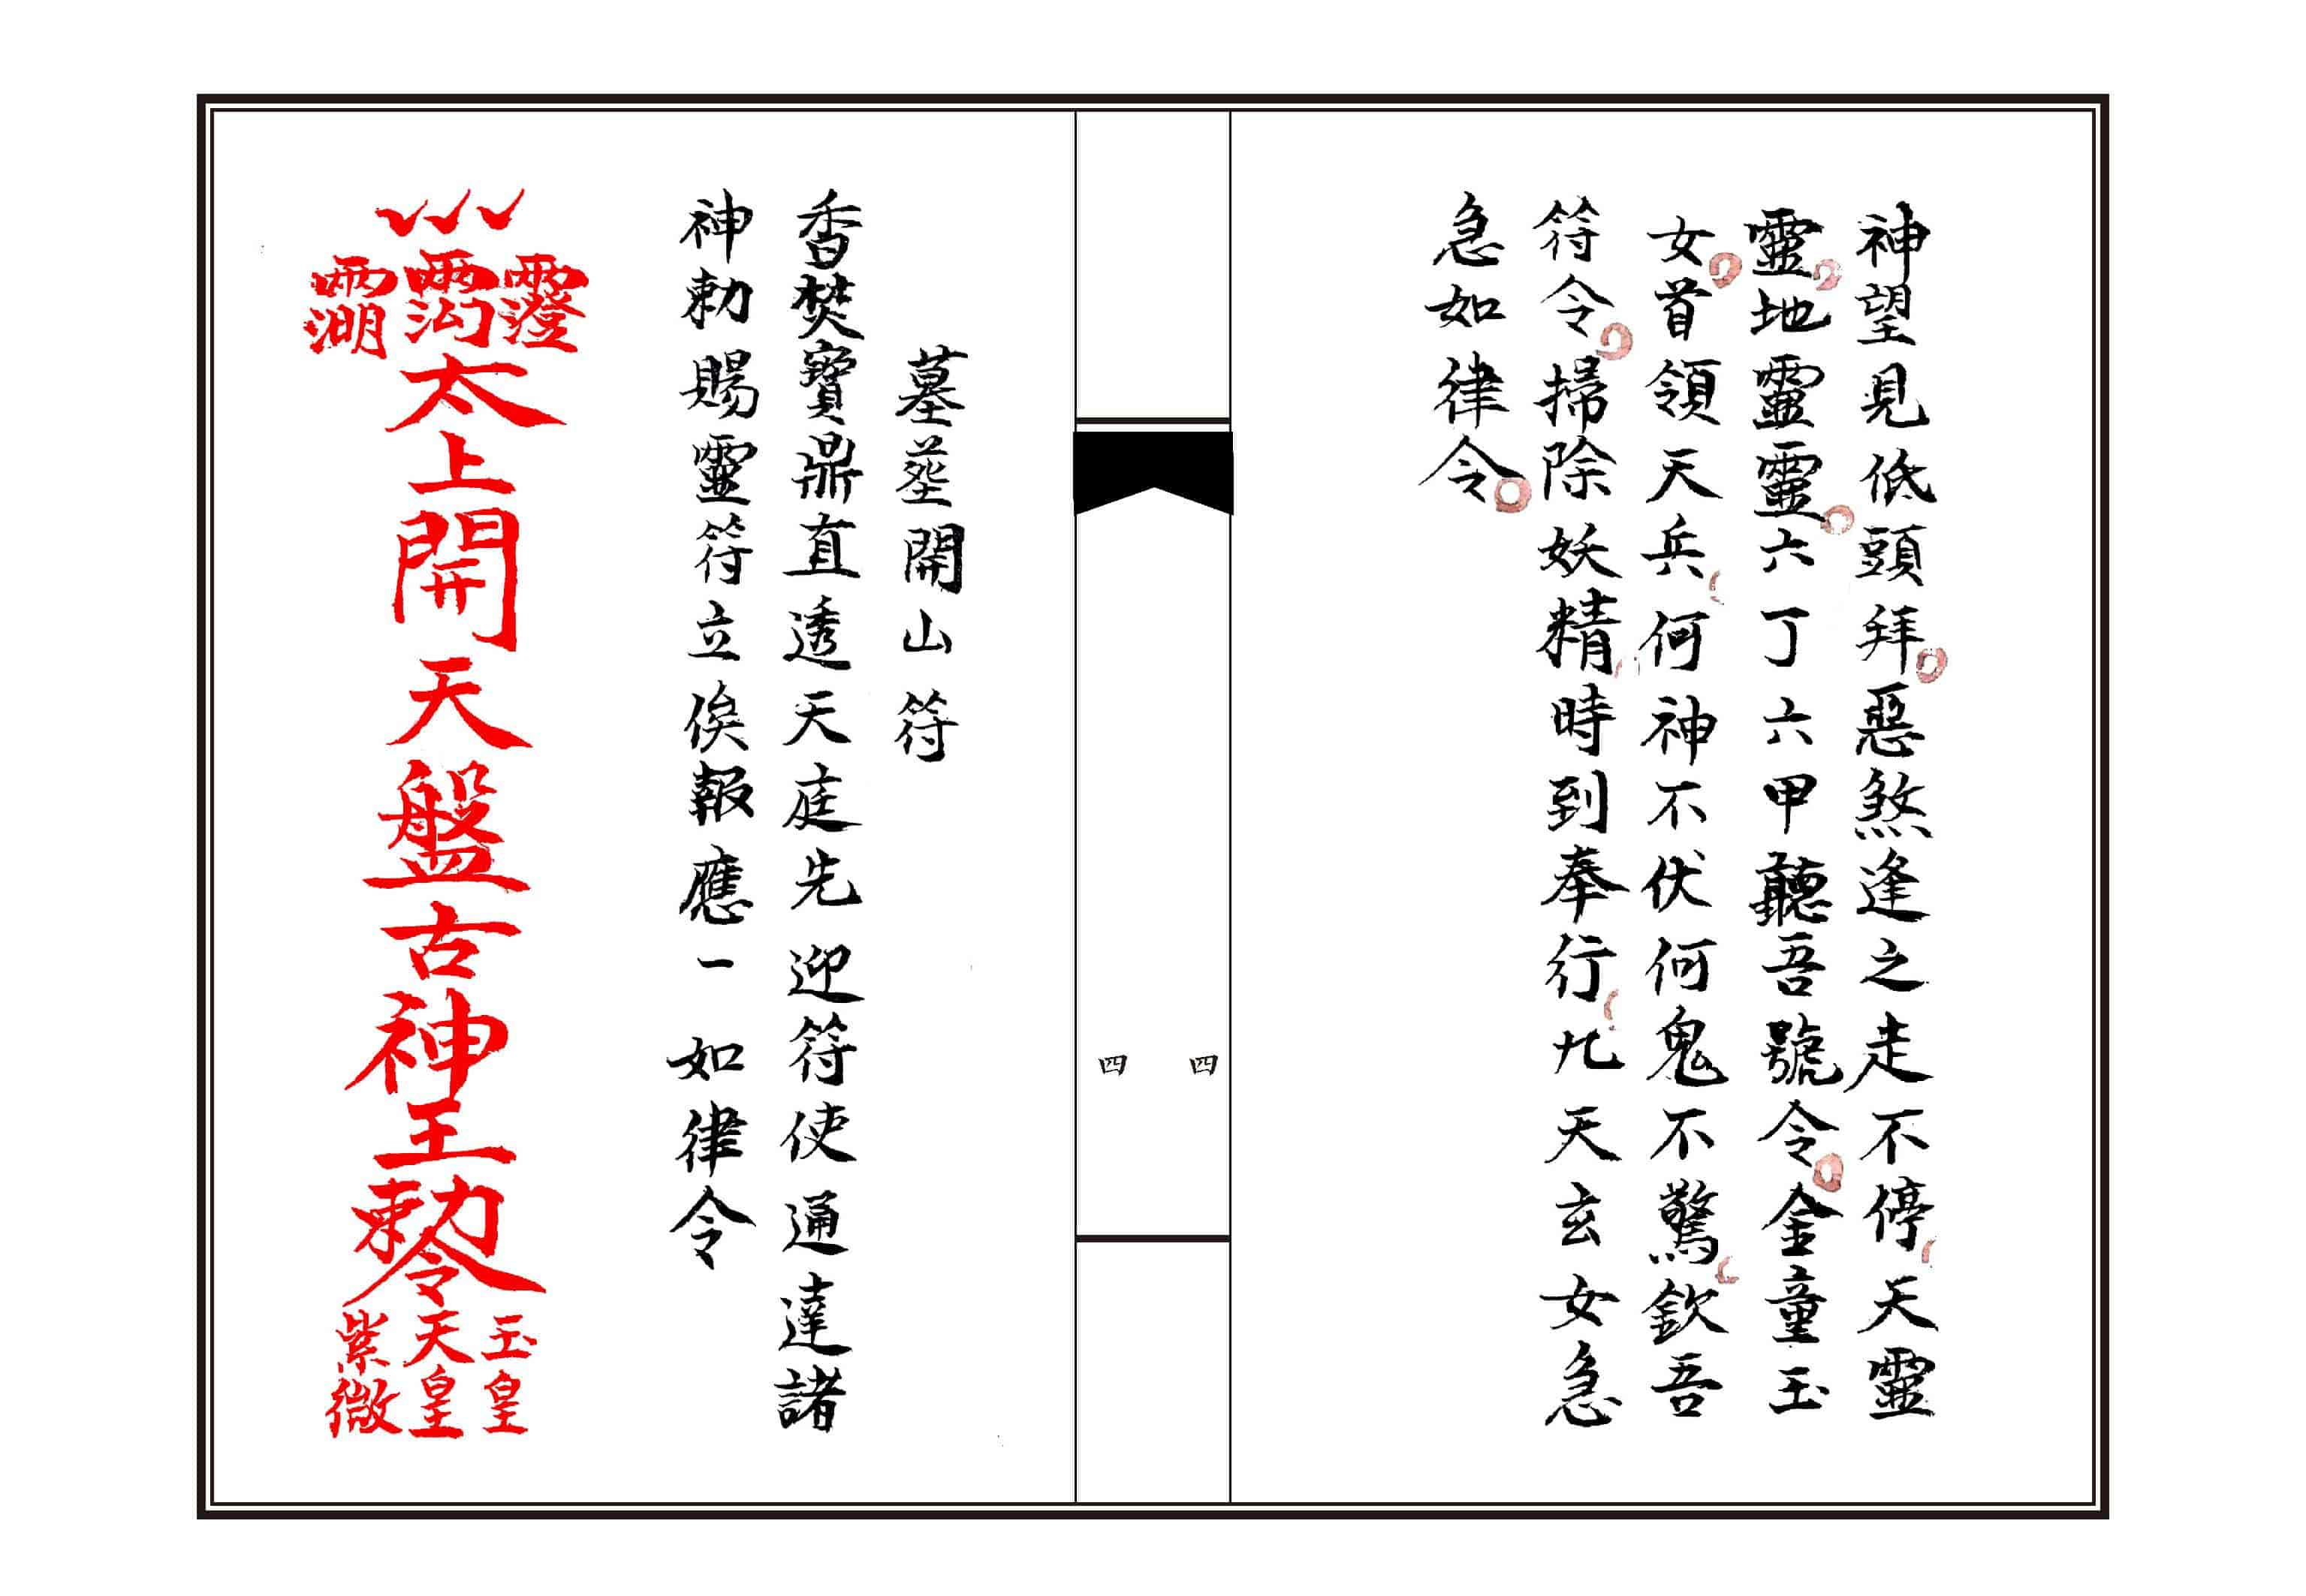 神望見低頭拜惡煞逢之走不停天靈
靈地靈靈六丁六甲聽吾號令金童玉
女首領天兵何神不伏何鬼不驚欽吾
符令掃除妖精時到奉行九天玄女急
急如律令
四
四
墓塋開山符
香焚寶鼎直透天庭先迎符使通達諸
神勅賜靈符立俟報應一如律令
太上開天盤古神王勅令
玉皇
天皇
紫微